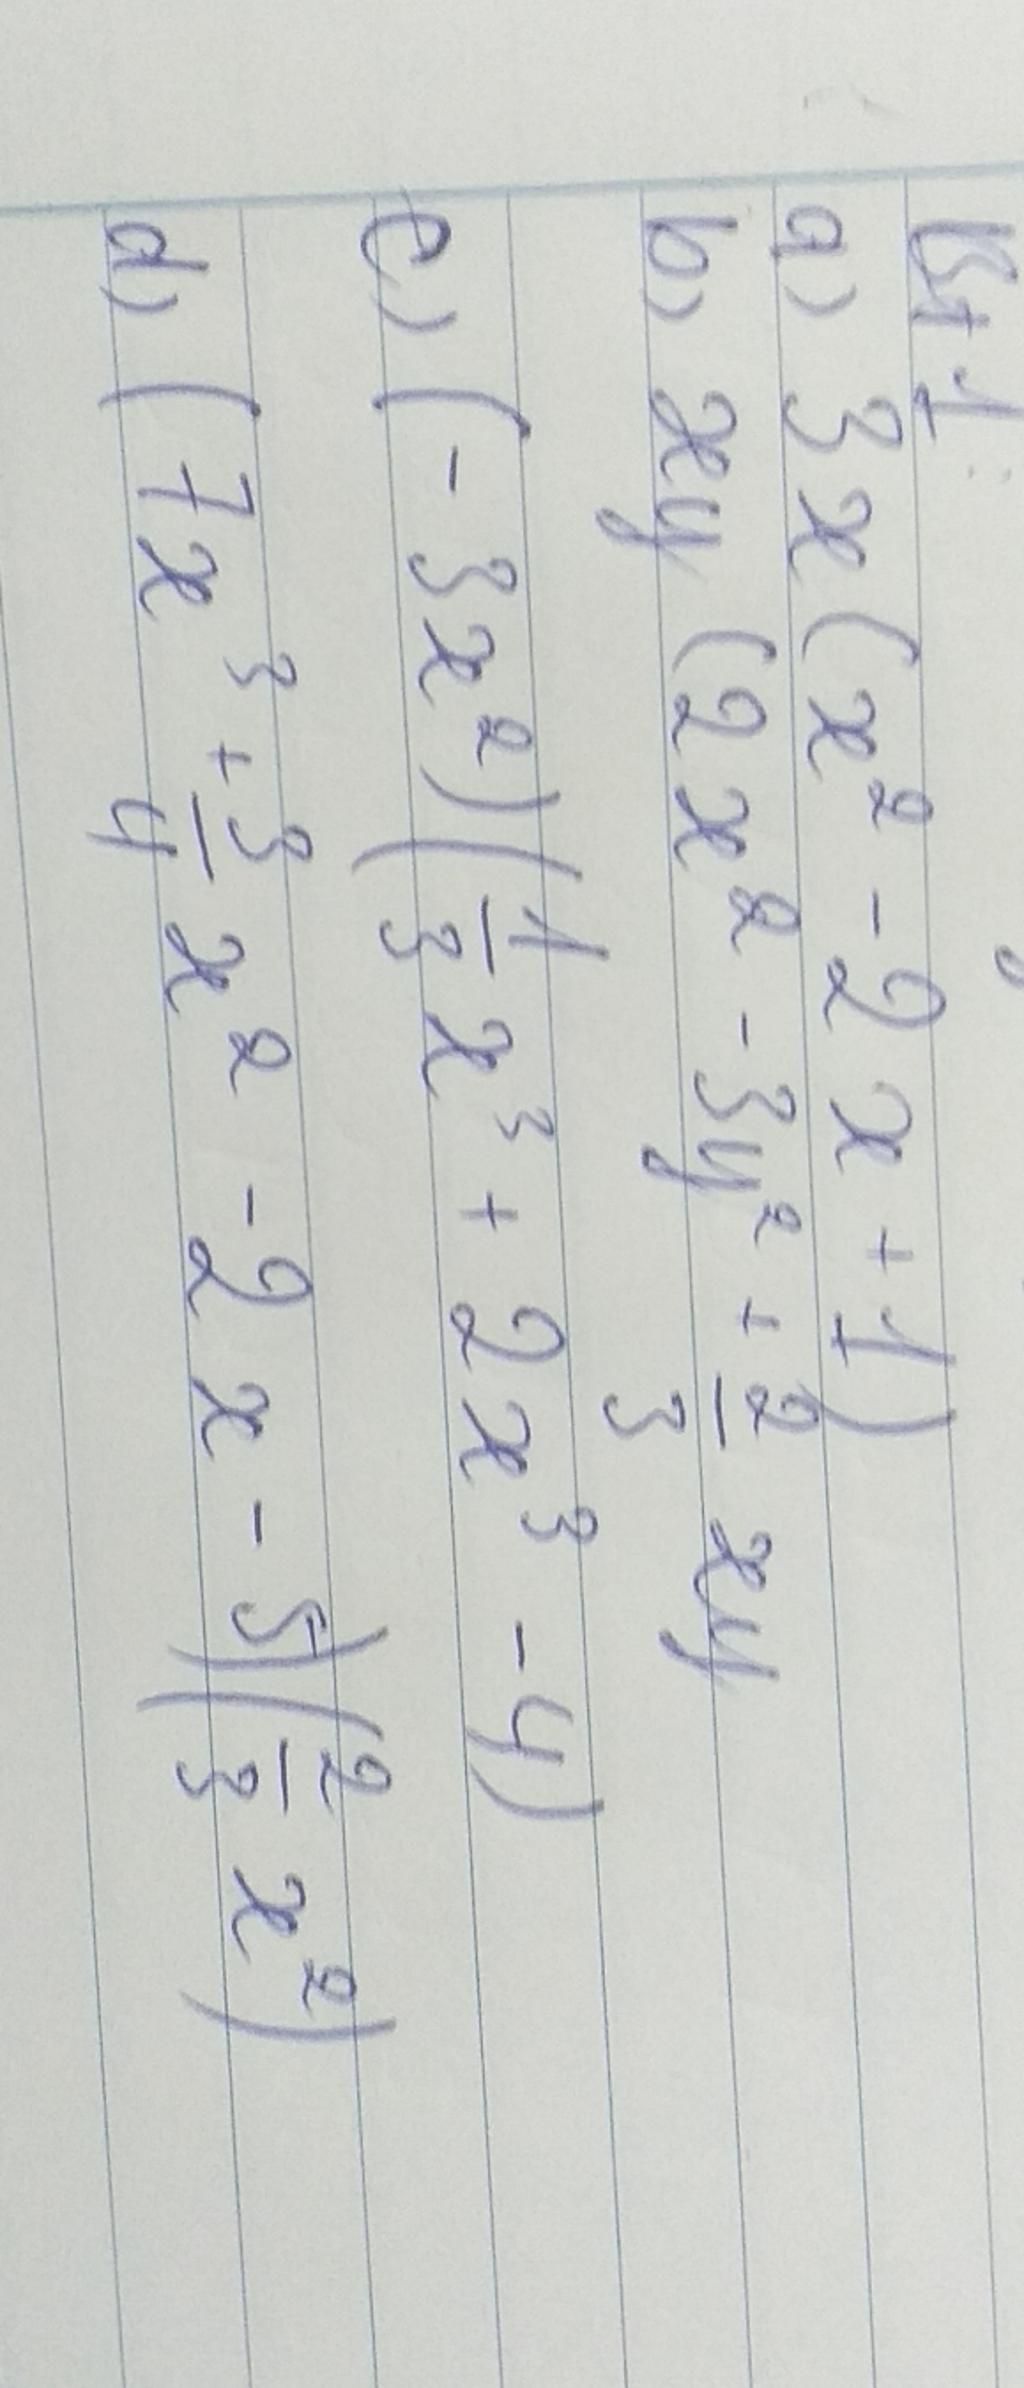 Bt 1:
a) 3x(x² - 2x + 1)
b) xy(2x² - 3y² + 2/3 xy
c) (-3x²)(1/3 x³ + 2x³ - 4)
d) (7x³ + 3/4 x² - 2x - 5)(2/3 x²)